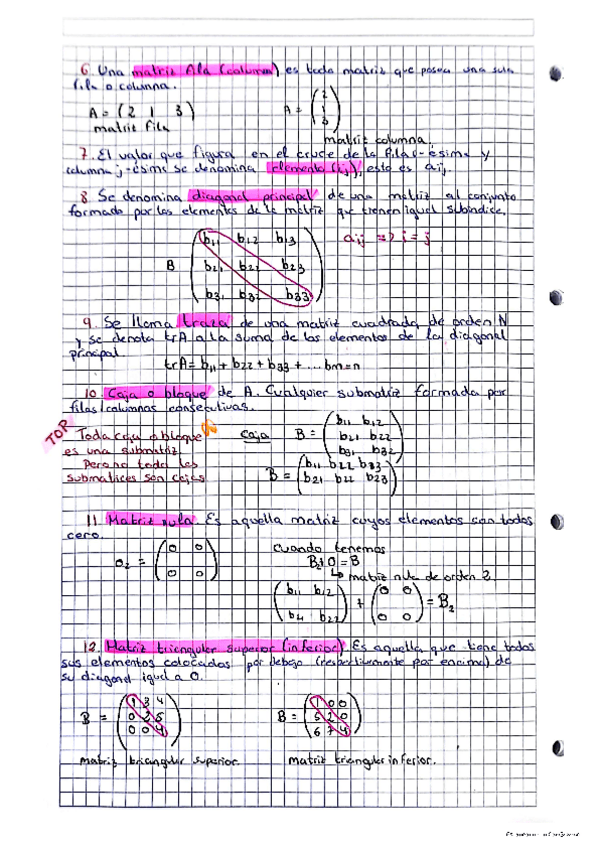 6. Una matriz fila (columna) es toda matriz que posea una sola
fila o columna.
A = (2 1 3)
A = (2 1 3)
matriz fila
matriz columna.
7. El valor que figura en el cruce de la fila i-ésima y
columna j-ésima se denomina elemento (i,j), esto es aij.
8 Se denomina diagonal principal de una matriz al conjunto
formado por los elementos de la matriz que tienen igual subíndice.
b11 b12 b13
aij => i = j
B b21 b22 b23
b31 b32 b33
9. Se llama traza de una matriz cuadrada de orden N
y se denota trA a la suma de los elementos de la diagonal
principal.
trA = b11 + b22 + b33 + ... bm=n
10. Caja o bloque de A. Cualquier submatriz formada por
filas/columnas consecutivas.
TOP
Toda caja o bloque
es una submatriz.
Pero no todas las
submatrices son cajas
caja B =
b11 b12
b21 b22
b31 b32
B =
b11 b22 b33
b21 b22 b23
11. Matriz nula. Es aquella matriz cuyos elementos son todos
cero.
o2 =
0 0
0 0
cuando tenemos
B+0 = B
↳ matriz nula de orden 2.
b11 b12 + 0 0 = B2
b21 b22 0 0
12. Matriz triangular superior (inferior). Es aquella que tiene todos
sus elementos colocados por debajo (respectivamente por encima) de
su diagonal igual a 0.
B =
1 3 4
0 2 5
0 0 4
B =
1 0 0
5 2 0
6 7 4
matriz triangular superior.
matriz triangular inferior.